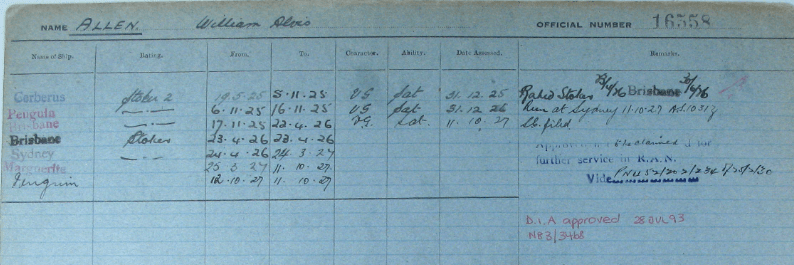 NAME ALLEN. William Alvis OFFICIAL NUMBER 16558
Name of Ship. Rating. From. To. Character. Ability. Date Assessed. Remarks.
Cerberus Stoker 2 19.5.25 5.11.25 VG Sat 31.12.25 Rated Stoker Brisbane
Penguin 6.11.25 16.11.25 VG Sat. 31.12.26 Run at Sydney 11.10.27
Brisbane 17.11.25 22.4.26 VG Sat. 11.10.27
Brisbane Stoker 23.4.26 23.4.26
Sydney 24.4.26 24 3.27
Marguerite 25 3.27 11.10.27 further service in R.A.N.
Penguin 12.10.27 11.10.27 Vide
D.I.A approved 28 JUL 93
N83/3468